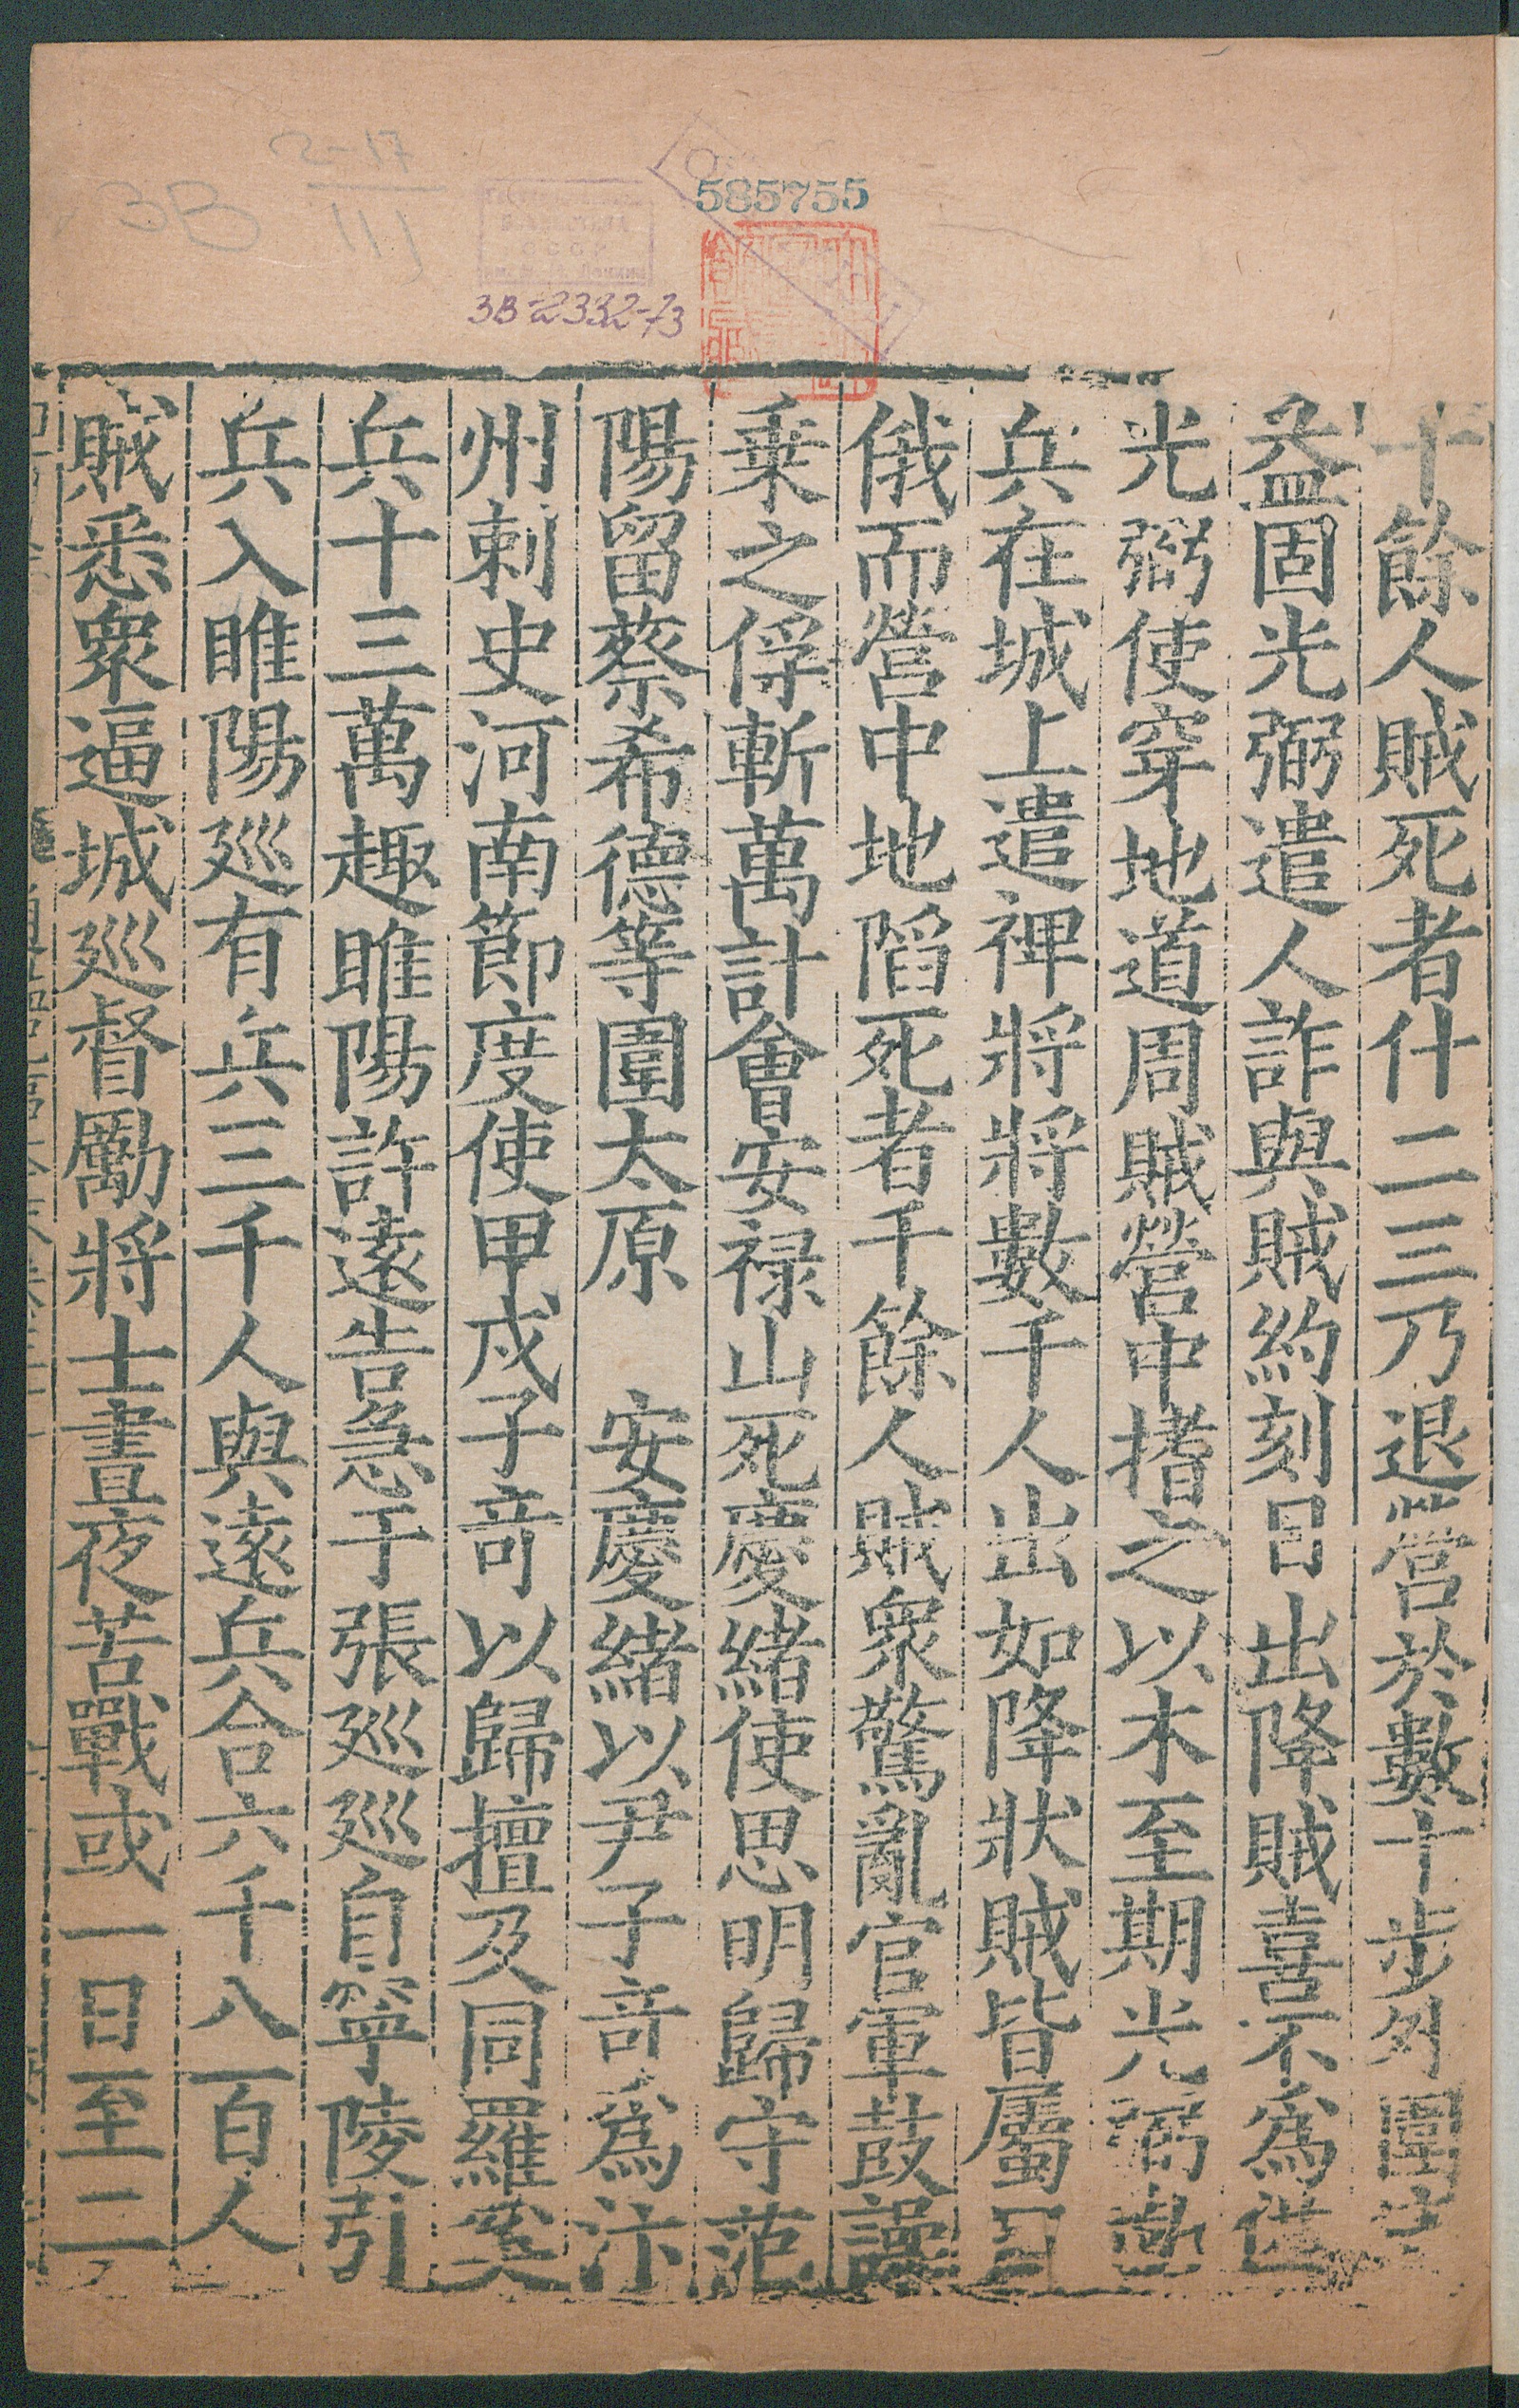 2-17
3B 111
585755
СССР
3B-2332-73
十餘人賊死者什二三乃退營於數十步外圍守
益固光弼遣人詐與賊約刻日出降賊喜不為備
光弼使穿地道周賊營中搘之以木至期光弼勒
兵在城上遣裨將將數千人出如降狀賊皆屬目
俄而營中地陷死者千餘人賊衆驚亂官軍鼓譟
乗之俘斬萬計會安禄山死慶緒使思明歸守范
陽留蔡希德等圍太原 安慶緒以尹子竒爲汴
州刺史河南節度使甲戌子竒以歸擅及同羅奚
兵十三萬趣睢陽許逺告急于張廵廵自寧陵引
兵入睢陽廵有兵三千人與逺兵合六千八百人
賊悉衆逼城廵督勵將士晝夜苦戰或一日至二